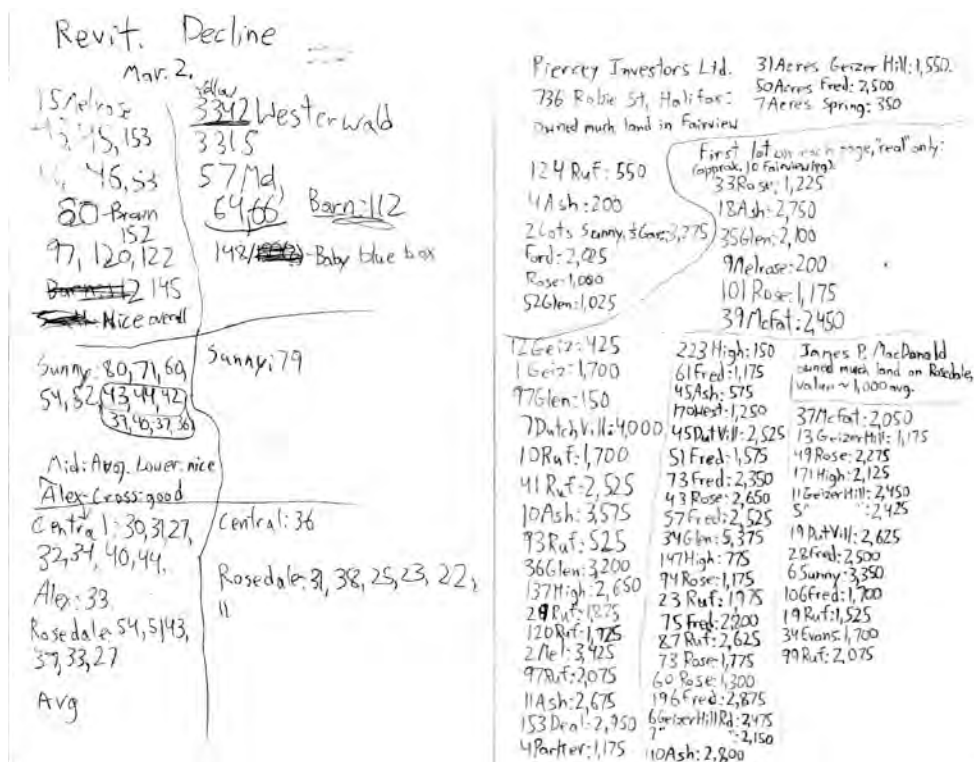 Revit. Decline
Mar. 2.
15 Melrose
45, 153
46, 53
80 - Brown
152
97, 120, 122
145
Nice overall
yellow
3342 Westerwald
3315
57 Md,
64,66 Barn: 112
148/ - Baby blue box
Sunny: 80, 71, 60,
54, 52, 43, 44, 42,
39, 40, 37, 36
Mid: Avg. Lower: nice
Alex-Cross: good
Sunny: 79
Central: 30, 31, 27,
32, 34, 40, 44,
Alex: 33
Rosedale: 54, 51, 43,
37, 33, 27
Avg
Central: 36
Rosedale: 31, 38, 25, 23, 22,
11
Piercey Investors Ltd.
736 Robie St, Halifax:
owned much land in Fairview
31 Acres Geizer Hill: 1,550.
50 Acres Fred: 2,500
7 Acres Spring: 350
124 Ruf: 550
4 Ash: 200
2 Lots Sunny, 3,775
Ford: 2,025
Rose: 1,000
52 Glen: 1,025
First lot on each page, "real" only:
(approx. 10 Fairview/pg)
33 Rose: 1,225
18 Ash: 2,750
35 Glen: 2,100
9 Melrose: 200
101 Rose: 1,175
39 McFat: 2,450
12 Geiz: 425
1 Geiz: 1,700
97 Glen: 150
7 Dutch Vill: 4,000
10 Ruf: 1,700
41 Ruf: 2,525
10 Ash: 3,575
93 Ruf: 525
36 Glen: 3,200
137 High: 2,650
28 Ruf: 1,875
120 Ruf: 1,925
2 Mel: 3,425
97 Ruf: 2,075
11 Ash: 2,675
153 Deal: 2,950
4 Parker: 1,175
223 High: 150
61 Fred: 1,175
45 Ash: 575
170 West: 1,250
45 Dut Vill: 2,525
51 Fred: 1,575
73 Fred: 2,350
43 Rose: 2,650
57 Fred: 2,525
34 Glen: 5,375
147 High: 775
94 Rose: 1,175
23 Ruf: 1975
75 Fred: 2,200
87 Ruf: 2,625
73 Rose: 1,775
60 Rose: 1,300
196 Fred: 2,875
6 Geizer Hill Rd: 2,475
7 " ": 2,150
10 Ash: 2,800
James P. MacDonald
owned much land on Rosedale,
value ~ 1,000 avg.
37 McFat: 2,050
13 Geizer Hill: 1,175
49 Rose: 2,275
171 High: 2,125
11 Geizer Hill: 2,450
5 " ": 2,425
19 Dut Vill: 2,625
28 Fred: 2,500
6 Sunny: 3,350
106 Fred: 1,700
19 Ruf: 1,525
34 Evans: 1,700
99 Ruf: 2,075